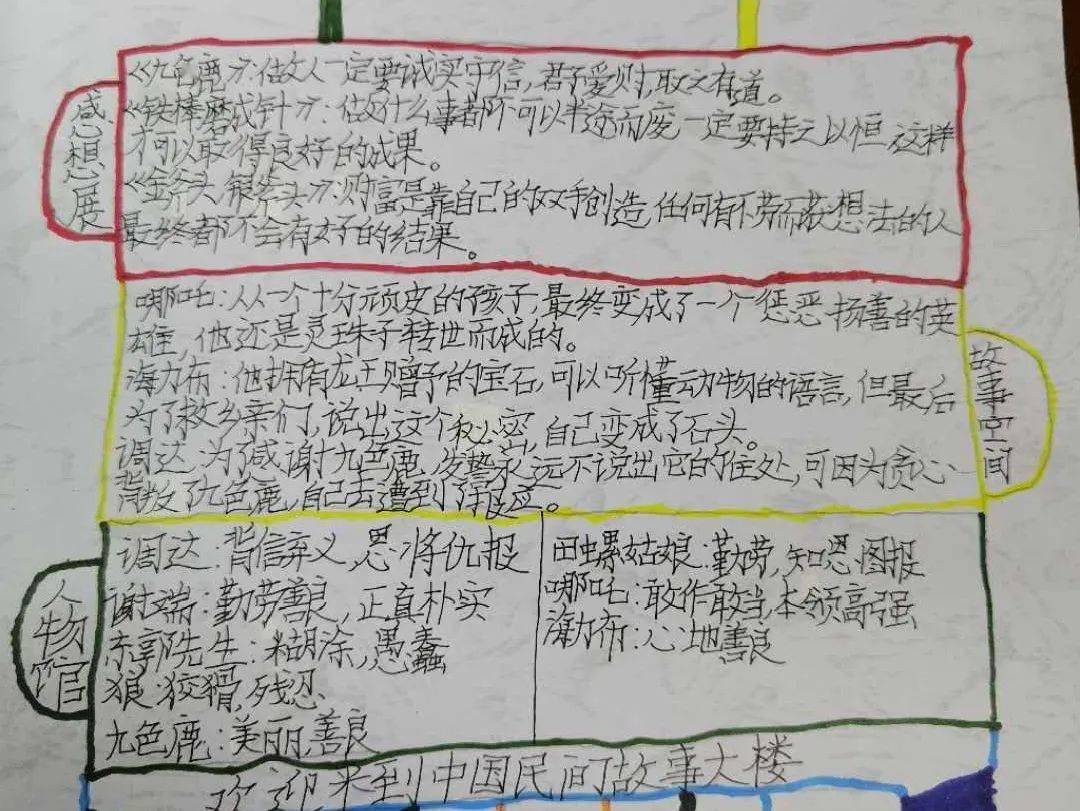 感想展
《九色鹿》:做人一定要诚实守信,君子爱财,取之有道。
《铁棒磨成针》:做什么事都不可以半途而废一定要持之以恒,这样
才可以取得良好的成果。
《金斧头,银斧头》:财富是靠自己的双手创造,任何有不劳而获想法的人
最终都不会有好的结果。
故事空间
哪吒:从一个十分顽皮的孩子,最终变成了一个惩恶扬善的英
雄,他还是灵珠子转世而成的。
海力布:他拥有龙王赠予的宝石,可以听懂动物的语言,但最后
为了救乡亲们,说出这个秘密,自己变成了石头。
调达:为了感谢九色鹿,发誓永远不说出它的住处,可因为贪心
背叛了九色鹿,自己去遭到了报应。
人物馆
调达:背信弃义,恩将仇报
谢端:勤劳善良,正直朴实
东郭先生:糊涂,愚蠢
狼:狡猾,残忍
九色鹿:美丽,善良
田螺姑娘:勤劳,知恩图报
哪吒:敢作敢当,本领高强
海力布:心地善良
欢迎来到中国民间故事大楼